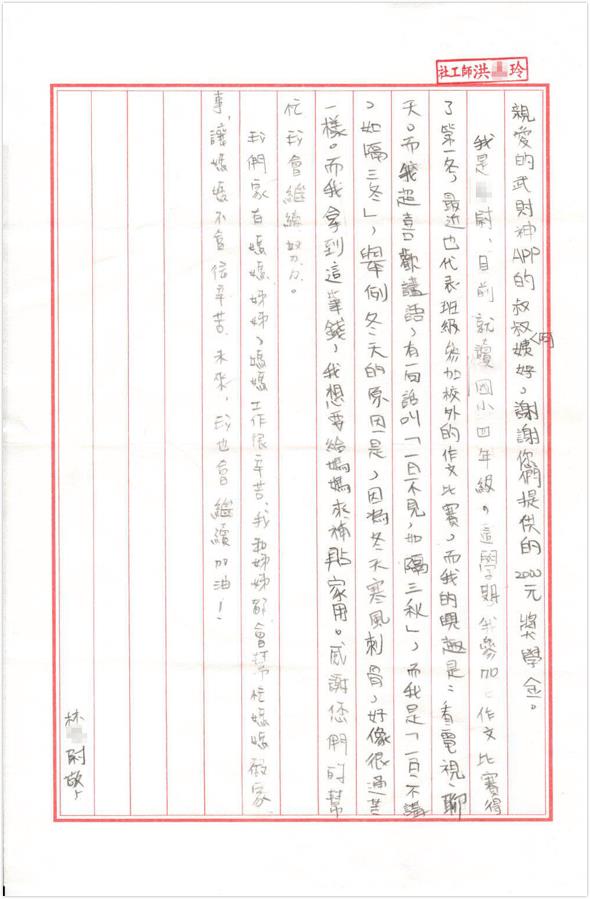 社工師洪玲
親愛的武財神APP的叔叔阿姨好，謝謝您們提供的2000元獎學金。
我是尉，目前就讀國小四年級。這學期我參加作文比賽得
了第一名，最近也代表班級參加校外的作文比賽，而我的興趣是：看電視、聊
天。而我超喜歡講話，有一句話叫「一日不見，如隔三秋」，而我是「一日不講
，如隔三冬」，舉例冬天的原因是，因為冬天寒風刺骨，好像很通苦
一樣。而我拿到這筆錢，我想要給媽媽來補貼家用。感謝您們的幫
忙我會繼續努力。
我們家有媽媽姊姊，媽媽工作很辛苦，我和姊姊都會幫忙媽媽做家
事，讓媽媽不會倍辛苦，未來，我也會繼續加油！
林尉敬上